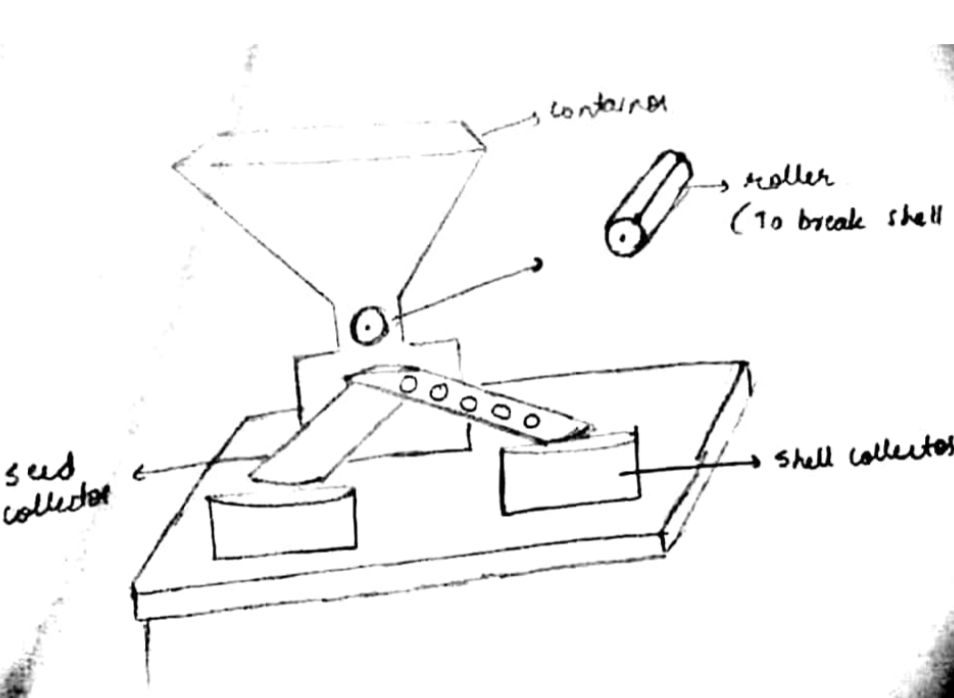 container
roller
(To break shell
seed
collector
shell collector